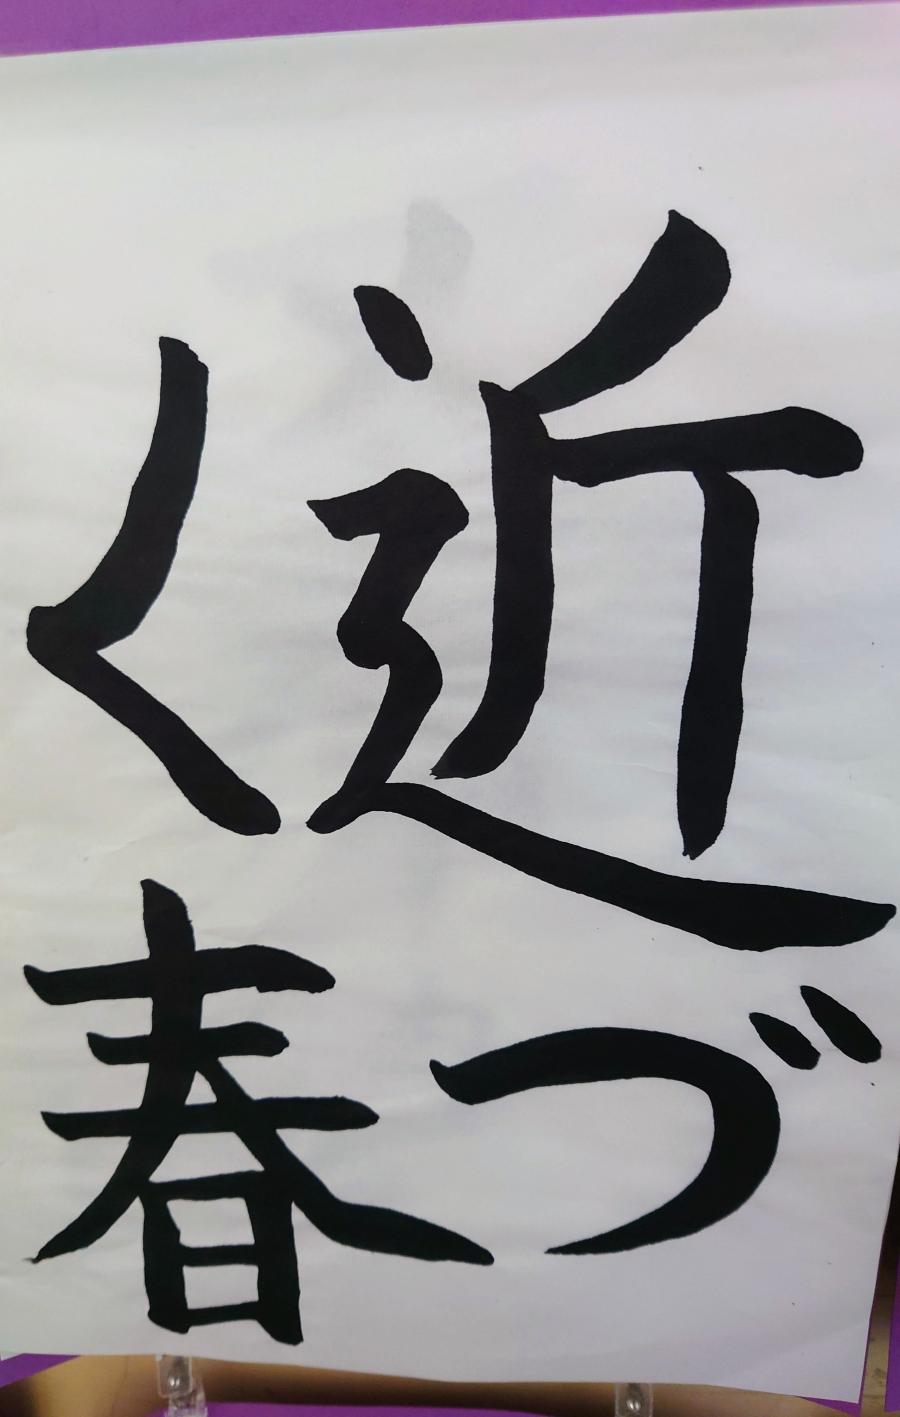 近づ
く春